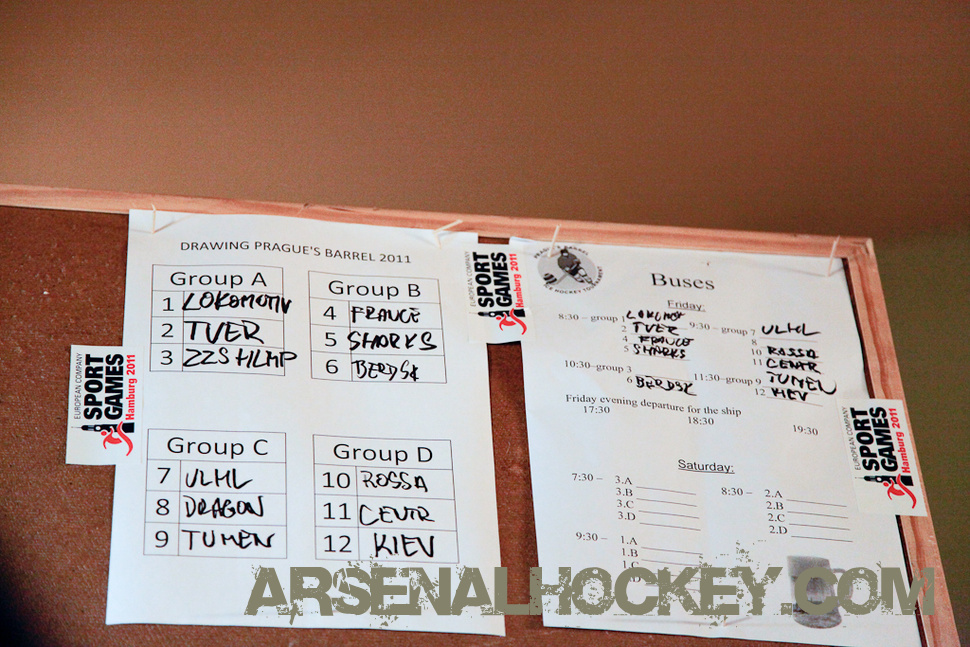 DRAWING PRAGUE'S BARREL 2011
Group A
1 LOKOMOTIV
2 TVER
3 ZZS HLMP
Group B
4 FRANCE
5 SHARKS
6 BERDSK
Group C
7 ULHL
8 DRAGON
9 TUMEN
Group D
10 ROSSA
11 CENTR
12 KIEV
EUROPEAN COMPANY
SPORT
GAMES
Hamburg 2011
EUROPEAN COMPANY
SPORT
GAMES
Hamburg 2011
Buses
Friday:
8:30 – group 1 LOKOMOT
2 TVER
4 FRANCE
5 SHARKS
9:30 – group 7 ULHL
8
10 ROSSA
11 CENTR
10:30 –group 3
6 BERDSK
11:30 –group 9 TUMEN
12 KIEV
Friday evening departure for the ship
17:30 18:30 19:30
Saturday:
7:30 – 3.A
3.B
3.C
3.D
8:30 – 2.A
2.B
2.C
2.D
9:30 – 1.A
1.B
1.C
EUROPEAN COMPANY
SPORT
GAMES
Hamburg 2011
ARSENALHOCKEY.COM